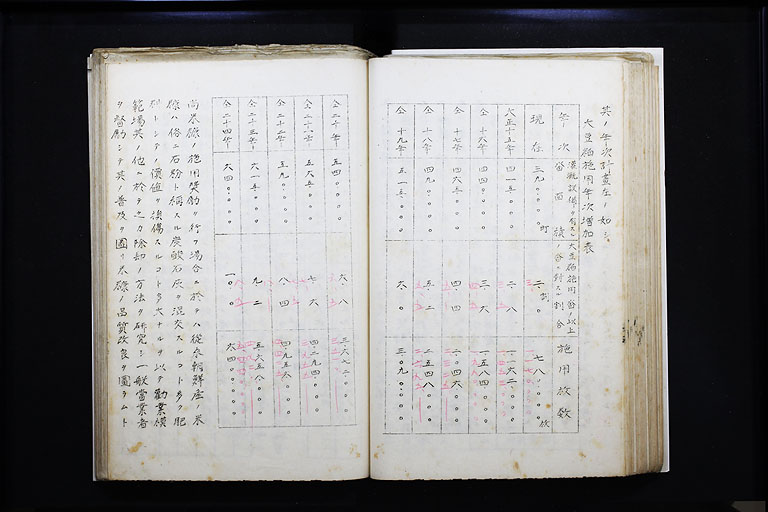 其ノ年次計畫左ノ如シ
大豆粕施用年次増加表
年次 灌漑設備ヲ有スル畓面積 大豆粕施用畓ノ以上ノ畓ニ対スル割合 施用枚数
現在 三九〇、〇〇〇町 二、〇割 七八〇、〇〇〇枚
大正十五年 四一五、〇〇〇 二、八 一、一六二、〇〇〇
仝十六年 四四〇、〇〇〇 三、六 一、五八四、〇〇〇
仝十七年 四六五、〇〇〇 四、四 二、〇四六、〇〇〇
仝十八年 四九〇、〇〇〇 五、二 二、五四八、〇〇〇
仝十九年 五一五、〇〇〇 六、〇 三、〇九〇、〇〇〇
仝二十年 五四〇、〇〇〇 六、八 三、六七二、〇〇〇
仝二十一年 五六五、〇〇〇 七、六 四、二九四、〇〇〇
仝二十二年 五九〇、〇〇〇 八、四 四、九五六、〇〇〇
仝二十三年 六一五、〇〇〇 九、二 五、六五八、〇〇〇
仝二十四年 六四〇、〇〇〇 一〇、〇 六、四〇〇、〇〇〇
尚米糠ノ施用奨励ヲ行フ場合ニ於テハ従来朝鮮産ノ米
糠ハ俗ニ石粉ト稱スル炭酸石灰ヲ混交スルコト多ク肥
料トシテノ價値ヲ損傷スルコト多大ナルヲ以テ勸業模
範場其ノ他ニ於テ之カ除却ノ方法ヲ研究シ一般當業者
ヲ督励シテ其ノ普及ヲ圖リ米糠ノ品質改良ヲ圖ラムト